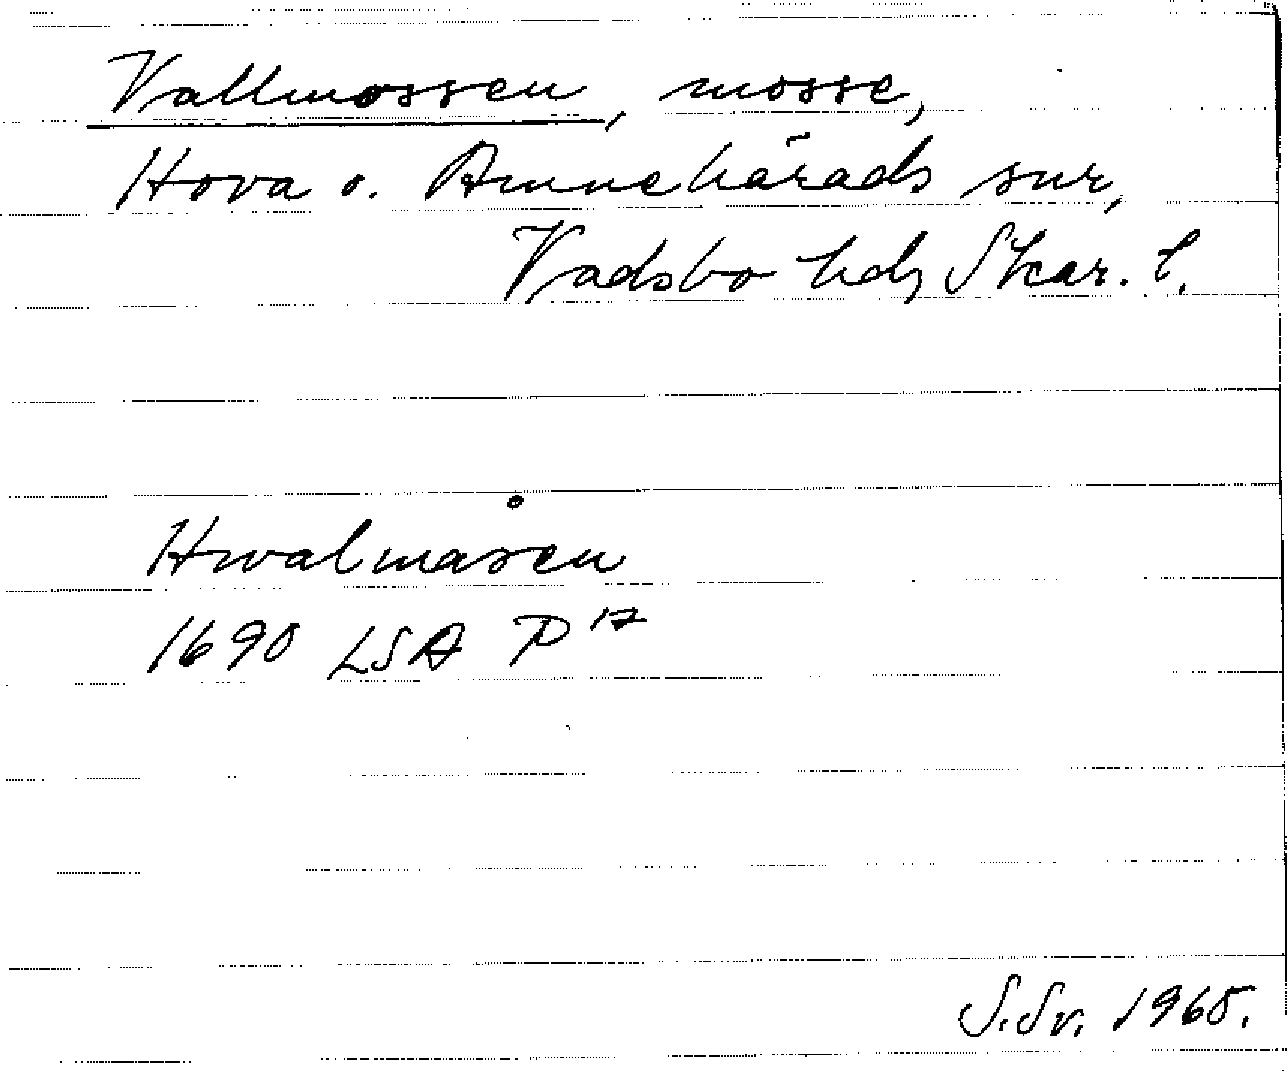 Vallmossen, mosse,
Hova o. Amnehärads snr,
Vadsbo hd, Skar. l.
Hwalmåsen
1690 LSA P 17
S.Sv. 1965.